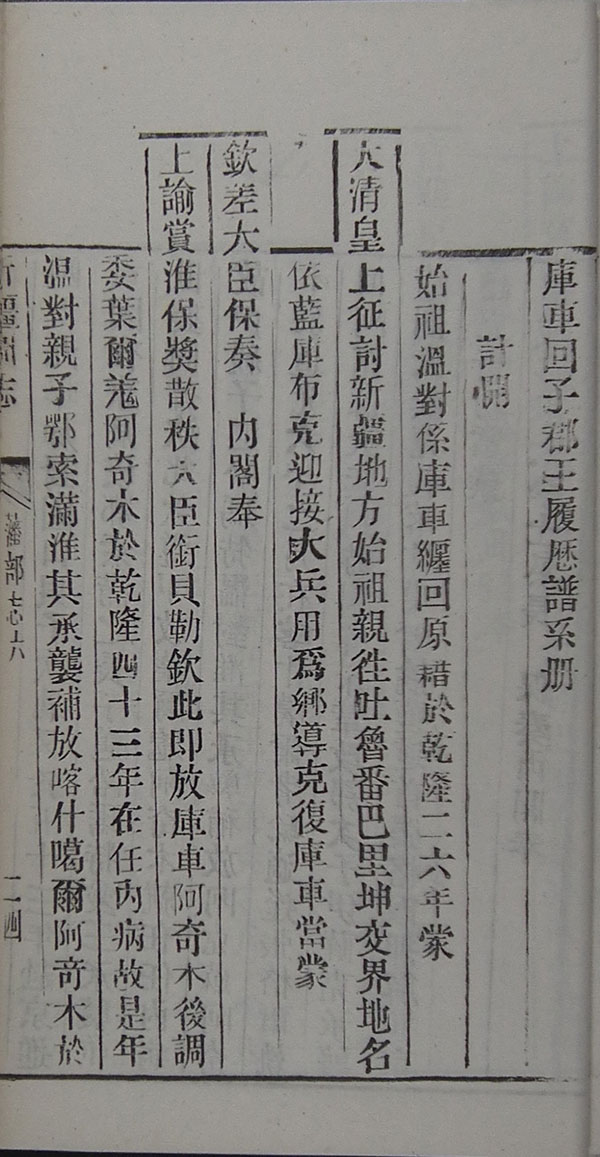 庫車回子郡王履歷譜系册
計開
始祖溫對係庫車纏回原籍於乾隆二六年蒙
大清皇上征討新疆地方始祖親徃吐魯番巴里坤交界地名
依藍庫布克迎接大兵用爲鄉導克復庫車當蒙
欽差大臣保奏 内閣奉
上諭賞淮保獎散秩大臣銜貝勒欽此即放庫車阿奇木後調
委葉爾羗阿奇木於乾隆四十三年在任内病故是年
溫對親子鄂索滿淮其承襲補放喀什噶爾阿奇木於
新疆圖志 藩部志六 二四